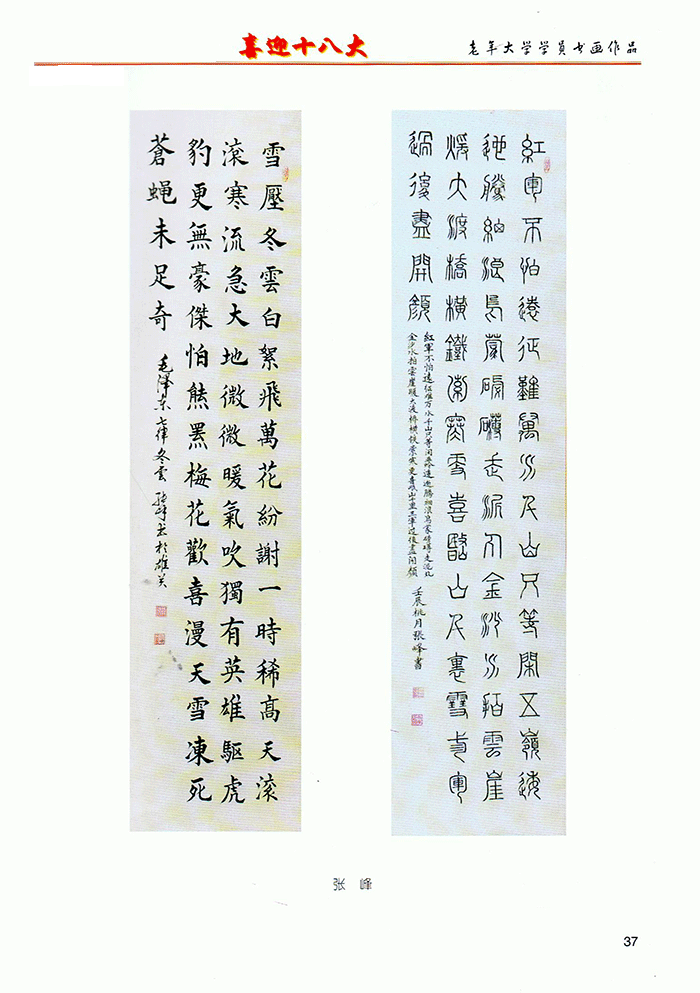 喜迎十八大
老年大学学员书画作品
雪壓冬雲白絮飛萬花紛謝一時稀高天滾
滾寒流急大地微微暖氣吹獨有英雄驅虎
豹更無豪傑怕熊羆梅花歡喜漫天雪凍死
蒼蝇未足奇
毛澤东七律冬雲 張峰书於雄关
紅軍不怕遠征難萬水千山只等閑五嶺逶
迤騰細浪烏蒙磅礴走泥丸金沙水拍雲崖
煖大渡橋橫鐵索寒更喜岷山千里雪三軍
過後盡開顏
紅軍不怕遠征难万水千山只等闲五岭逶迤腾细浪烏蒙磅礴走泥丸
金沙水拍雲崖暖大渡桥横铁索寒更喜岷山千里雪三軍过後盡開顏 壬辰桃月張峰書
张 峰
37